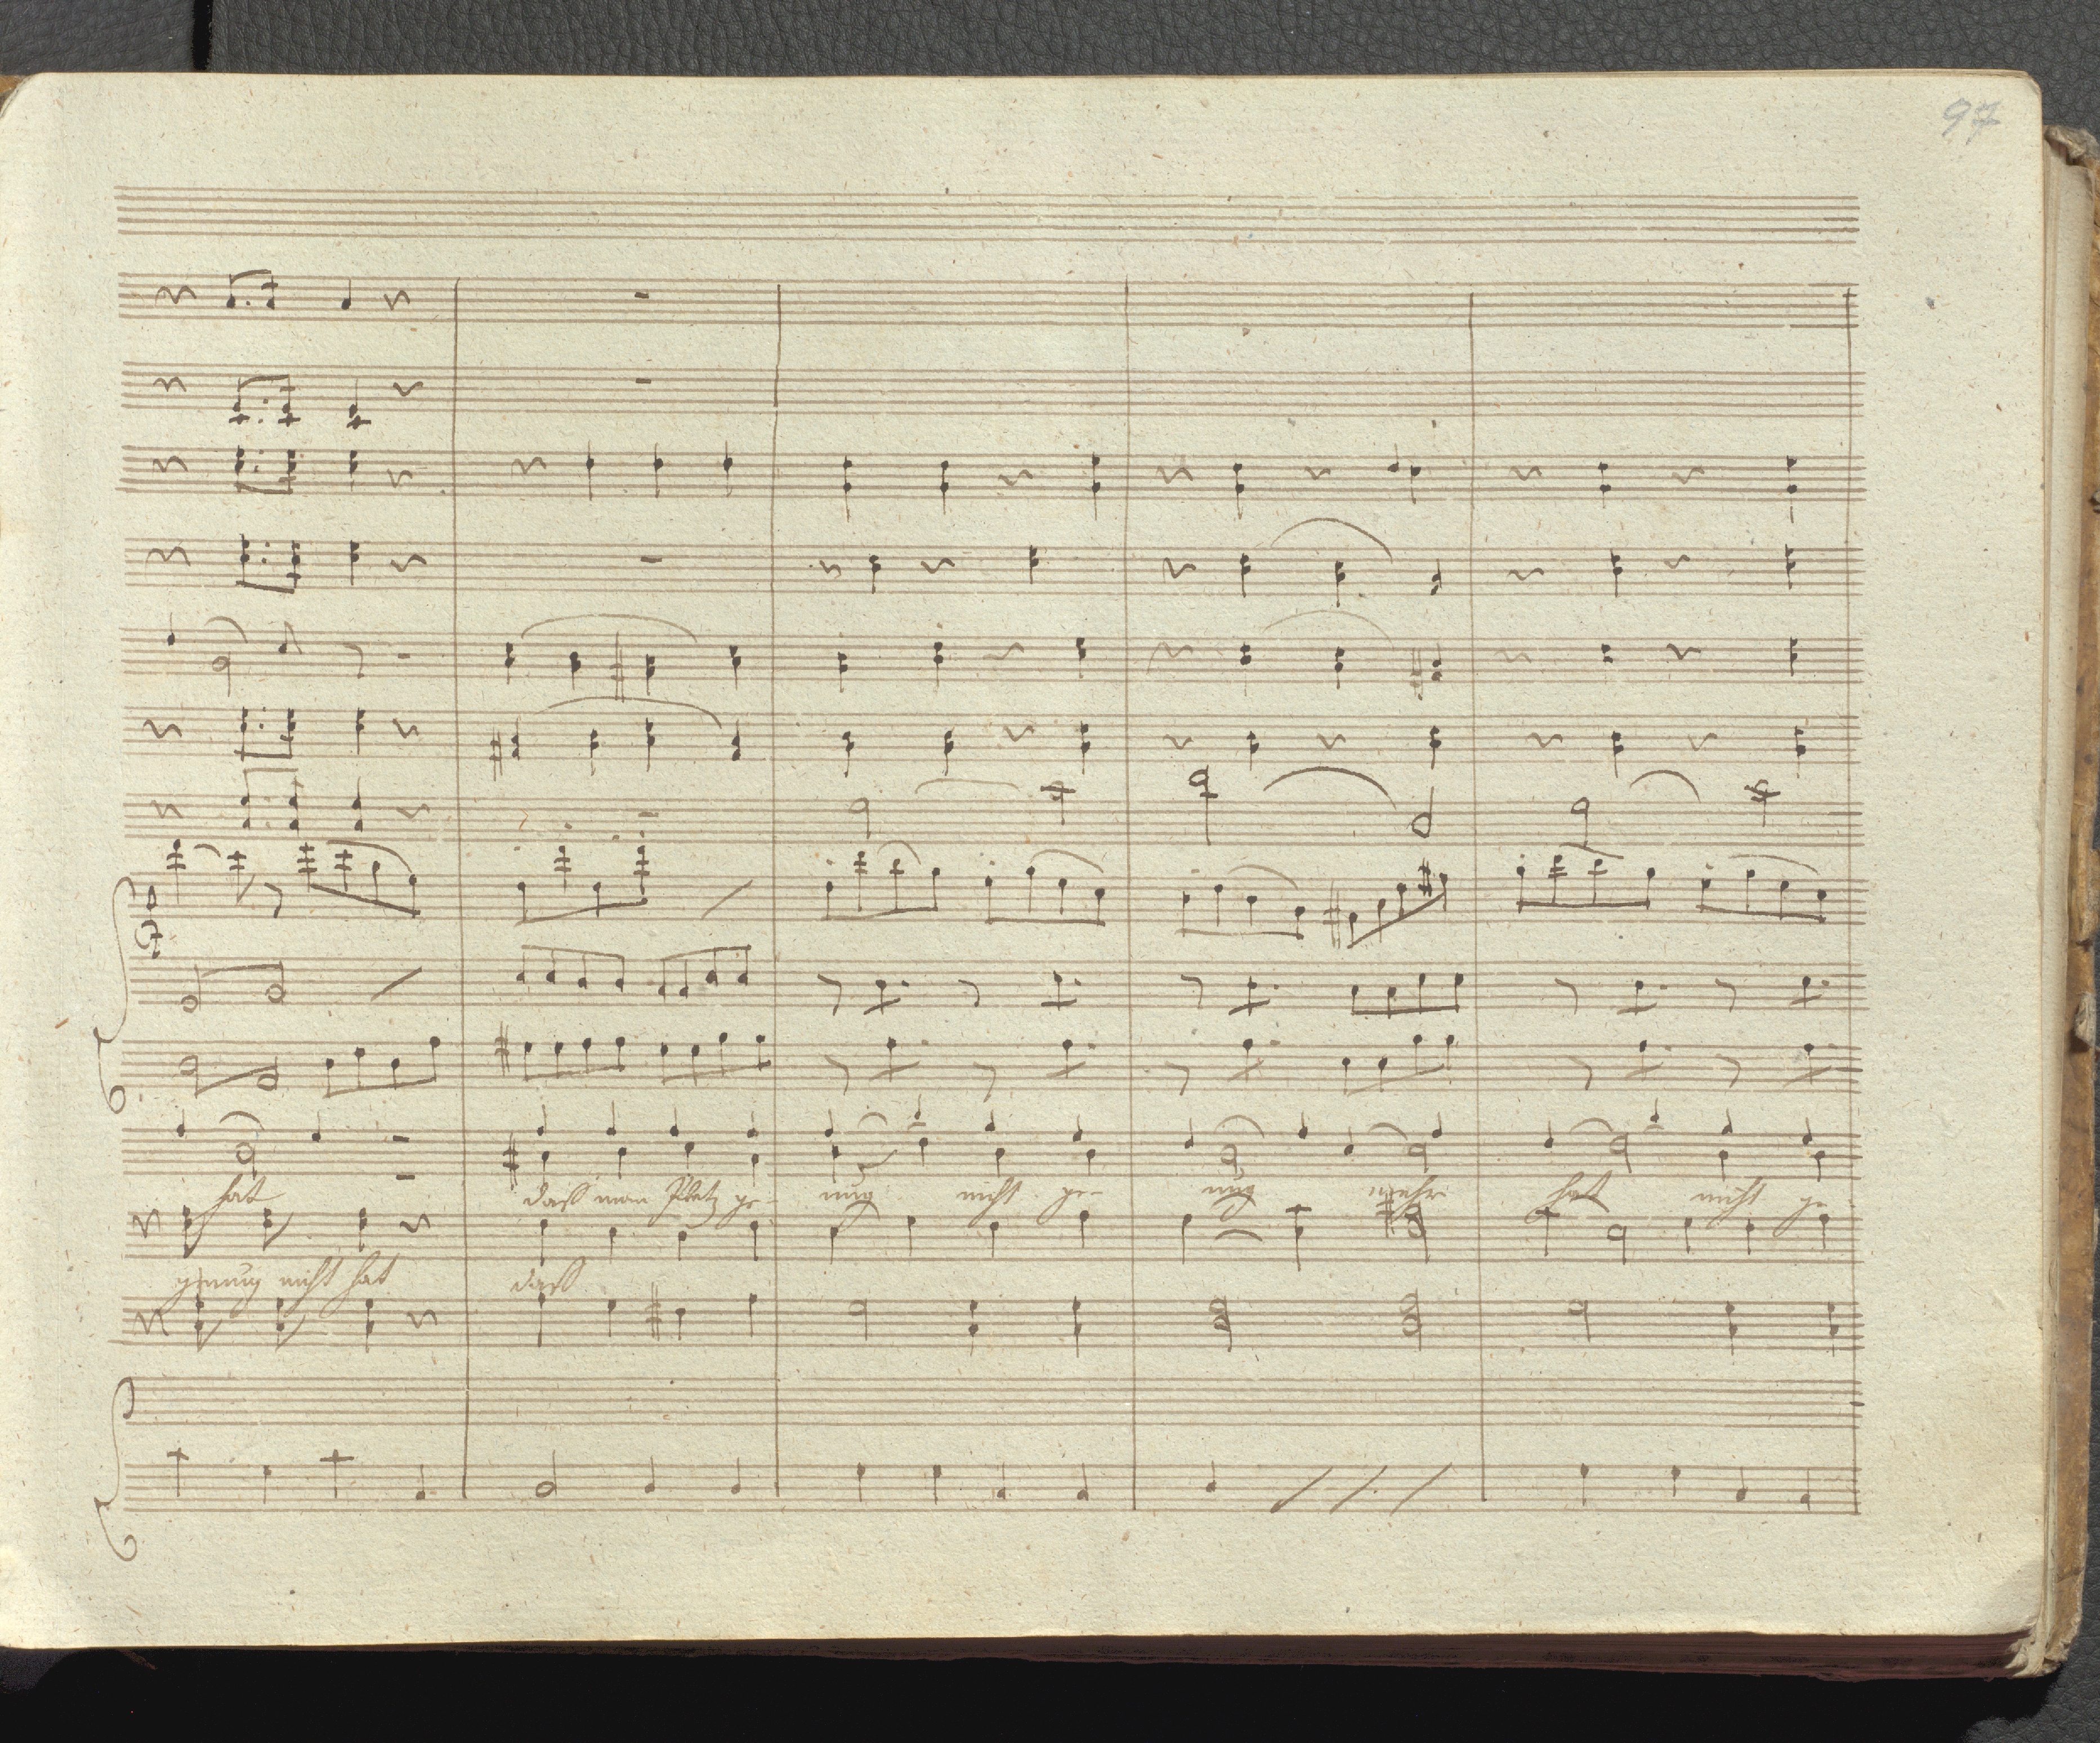 97
hat daß man Platz ge- nug nicht ge- nug mehr hat nicht ge-
genug nicht hat daß